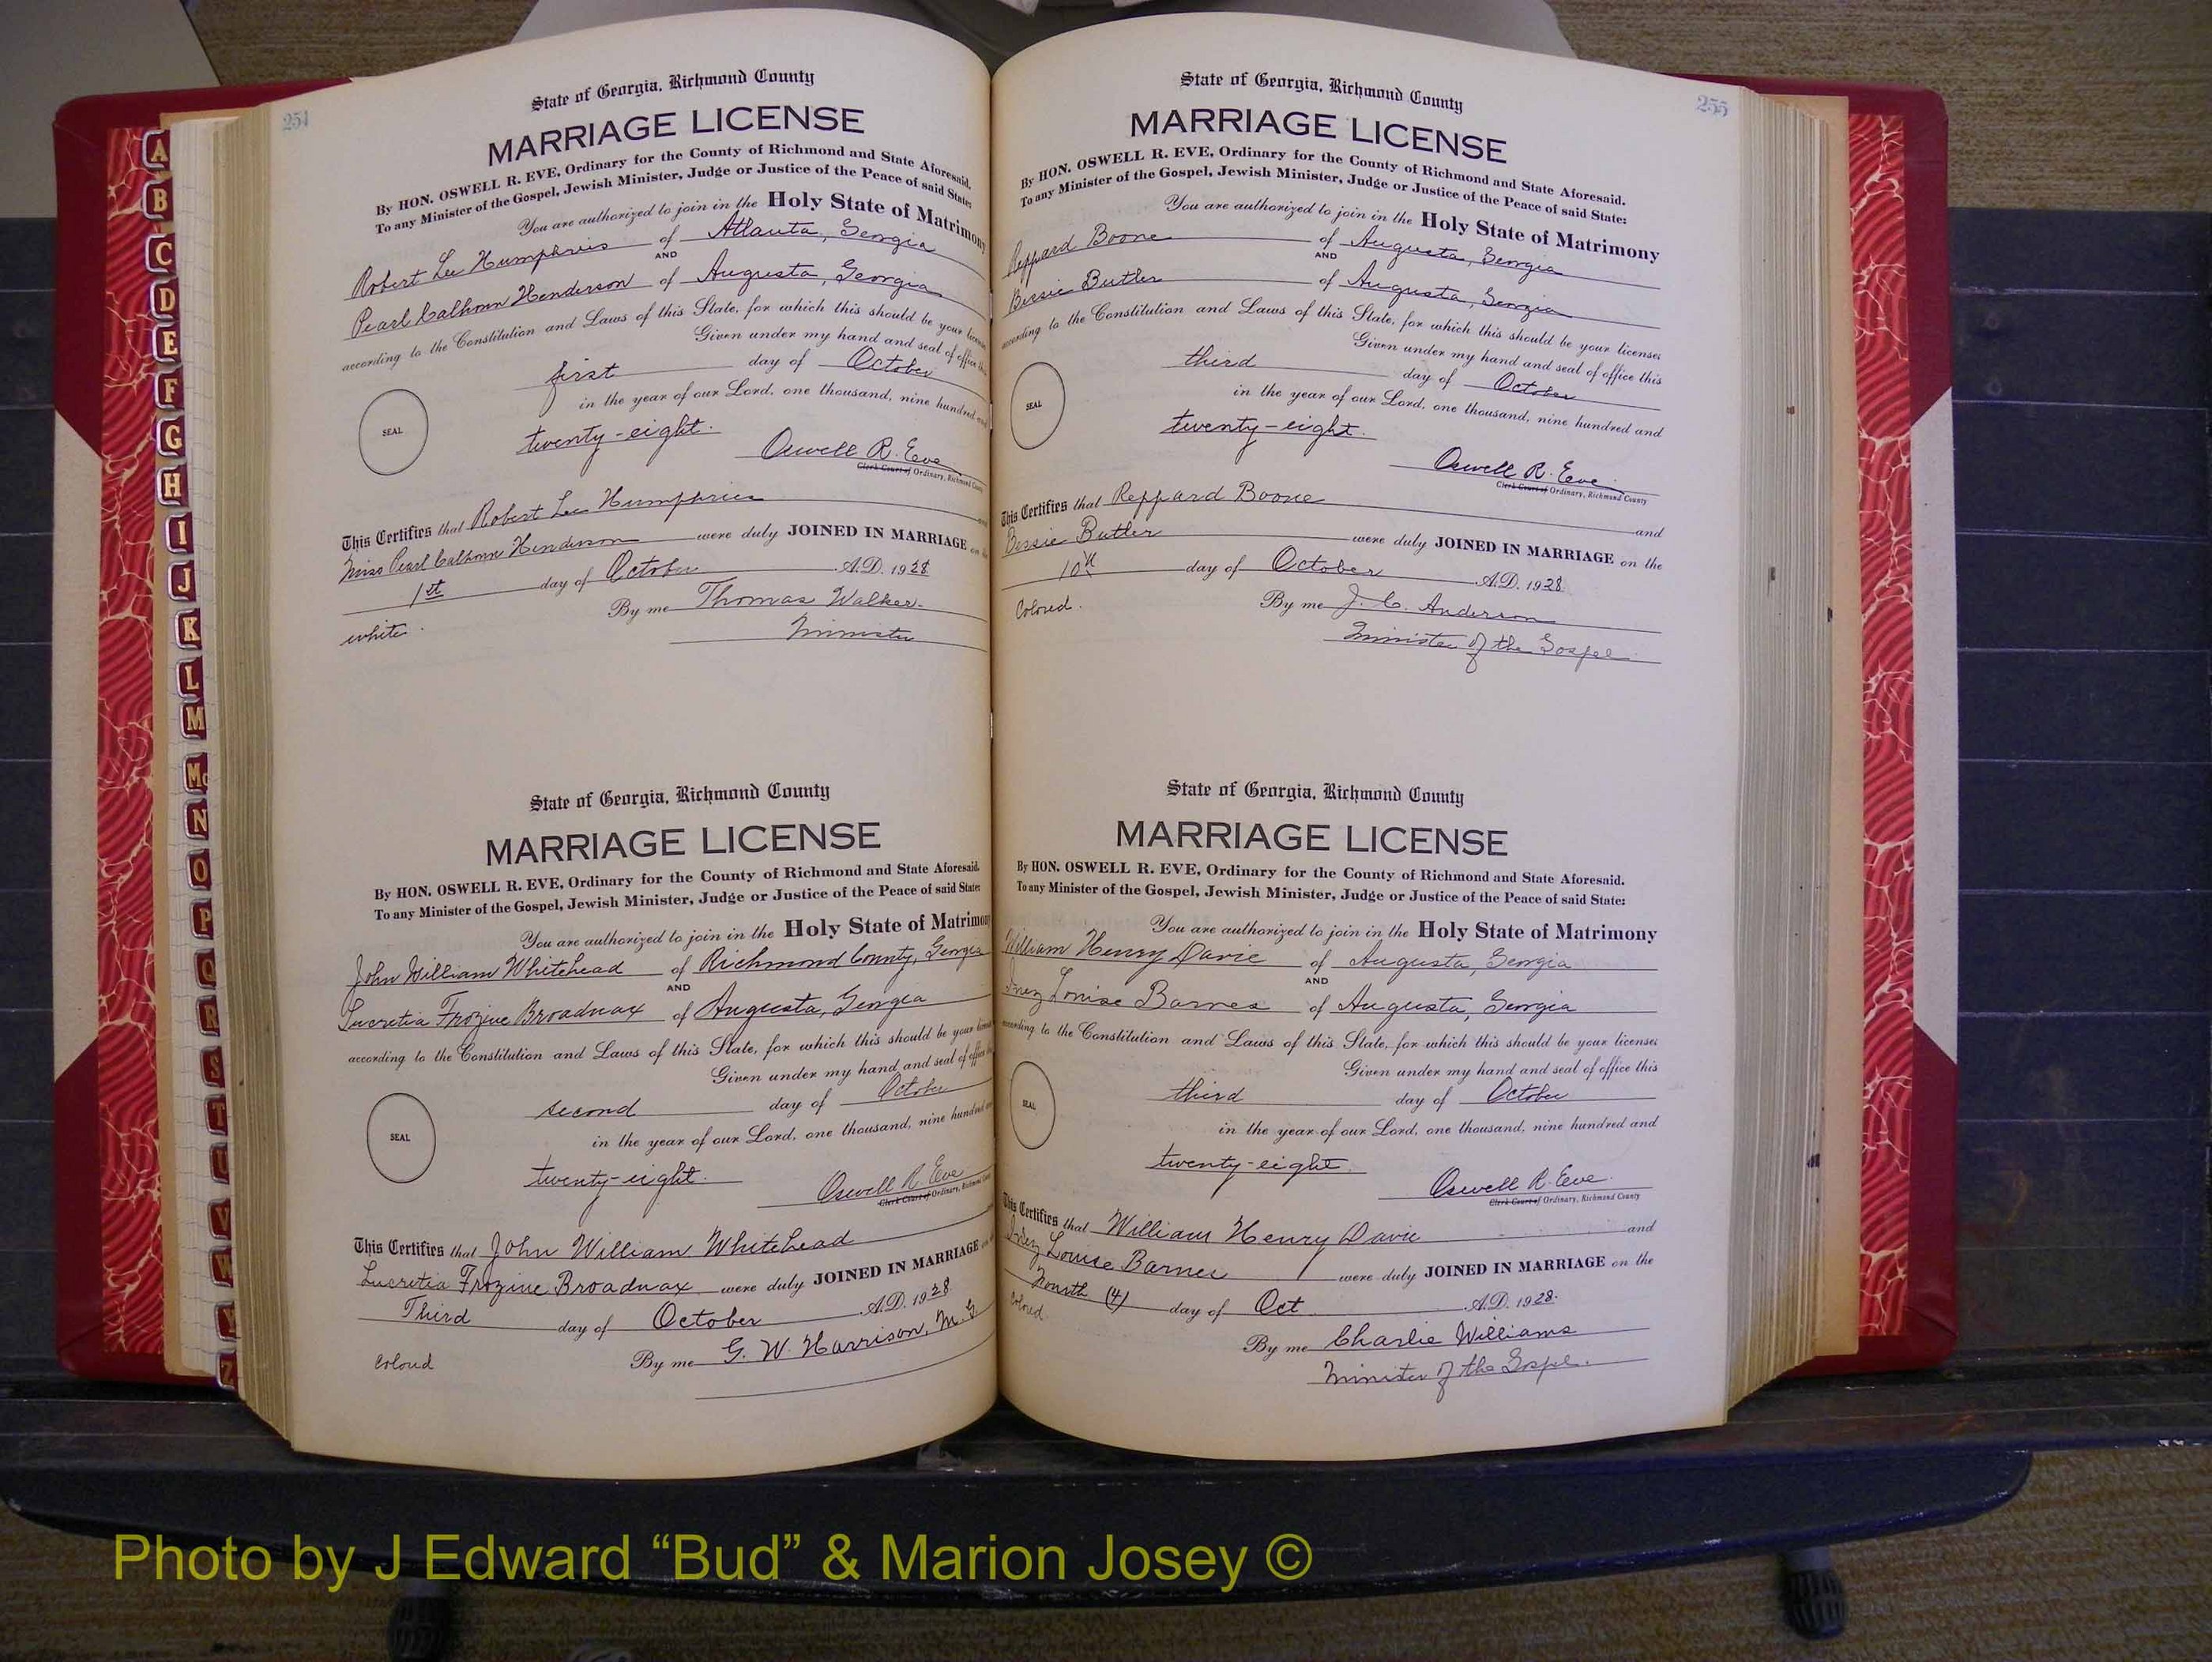 254
State of Georgia, Richmond County
MARRIAGE LICENSE
By HON. OSWELL R. EVE, Ordinary for the County of Richmond and State Aforesaid.
To any Minister of the Gospel, Jewish Minister, Judge or Justice of the Peace of said State:
You are authorized to join in the Holy State of Matrimony
Robert Lee Humphries of Atlanta, Georgia
AND
Pearl Calhoun Henderson of Augusta, Georgia
according to the Constitution and Laws of this State, for which this should be your license
Given under my hand and seal of office this
first day of October
in the year of our Lord, one thousand, nine hundred and
SEAL
twenty-eight.
Oswell R. Eve
Clerk Court of Ordinary, Richmond County
This Certifies that Robert Lee Humphries
Miss Pearl Calhoun Henderson were duly JOINED IN MARRIAGE on
1st day of October A.D. 1928
By me Thomas Walker.
white. Minister
State of Georgia, Richmond County
MARRIAGE LICENSE
By HON. OSWELL R. EVE, Ordinary for the County of Richmond and State Aforesaid.
To any Minister of the Gospel, Jewish Minister, Judge or Justice of the Peace of said State:
You are authorized to join in the Holy State of Matrimon
John William Whitehead of Richmond County, Georgia
AND
Lucretia Frozine Broadnax of Augusta, Georgia
according to the Constitution and Laws of this State, for which this should be your license
Given under my hand and seal of office
second day of October
in the year of our Lord, one thousand, nine hundred
SEAL
twenty-eight.
Oswell R. Eve
Clerk Court of Ordinary, Richmond County
This Certifies that John William Whitehead
Lucretia Frozine Broadnax were duly JOINED IN MARRIAGE
Third day of October A.D. 1928
colored By me G. W. Harrison, M. G
255
State of Georgia, Richmond County
MARRIAGE LICENSE
By HON. OSWELL R. EVE, Ordinary for the County of Richmond and State Aforesaid.
To any Minister of the Gospel, Jewish Minister, Judge or Justice of the Peace of said State:
You are authorized to join in the Holy State of Matrimony
Reppard Boone of Augusta, Georgia
AND
Bessie Butler of Augusta, Georgia
according to the Constitution and Laws of this State, for which this should be your licenses
Given under my hand and seal of office this
third day of October
in the year of our Lord, one thousand, nine hundred and
SEAL
twenty-eight.
Oswell R. Eve
Clerk Court of Ordinary, Richmond County
This Certifies that Reppard Boone and
Bessie Butler were duly JOINED IN MARRIAGE on the
10th day of October A.D. 1928
Colored. By me J. C. Anderson
Minister of the Gospel
State of Georgia, Richmond County
MARRIAGE LICENSE
By HON. OSWELL R. EVE, Ordinary for the County of Richmond and State Aforesaid.
To any Minister of the Gospel, Jewish Minister, Judge or Justice of the Peace of said State:
You are authorized to join in the Holy State of Matrimony
William Henry Davie of Augusta, Georgia
AND
Inez Louise Barnes of Augusta, Georgia
according to the Constitution and Laws of this State, for which this should be your licenses
Given under my hand and seal of office this
third day of October
in the year of our Lord, one thousand, nine hundred and
SEAL
twenty-eight.
Oswell R. Eve.
Clerk Court of Ordinary, Richmond County
This Certifies that William Henry Davie and
Inez Louise Barnes were duly JOINED IN MARRIAGE on the
Fourth (4) day of Oct A.D. 1928.
Colored. By me Charlie Williams
Minister of the Gospel.
A
B
C
D
E
F
G
H
I
J
K
L
M
Mc
N
O
P
Q
R
S
T
U
V
W
Y
Z
Photo by J Edward “Bud” & Marion Josey ©